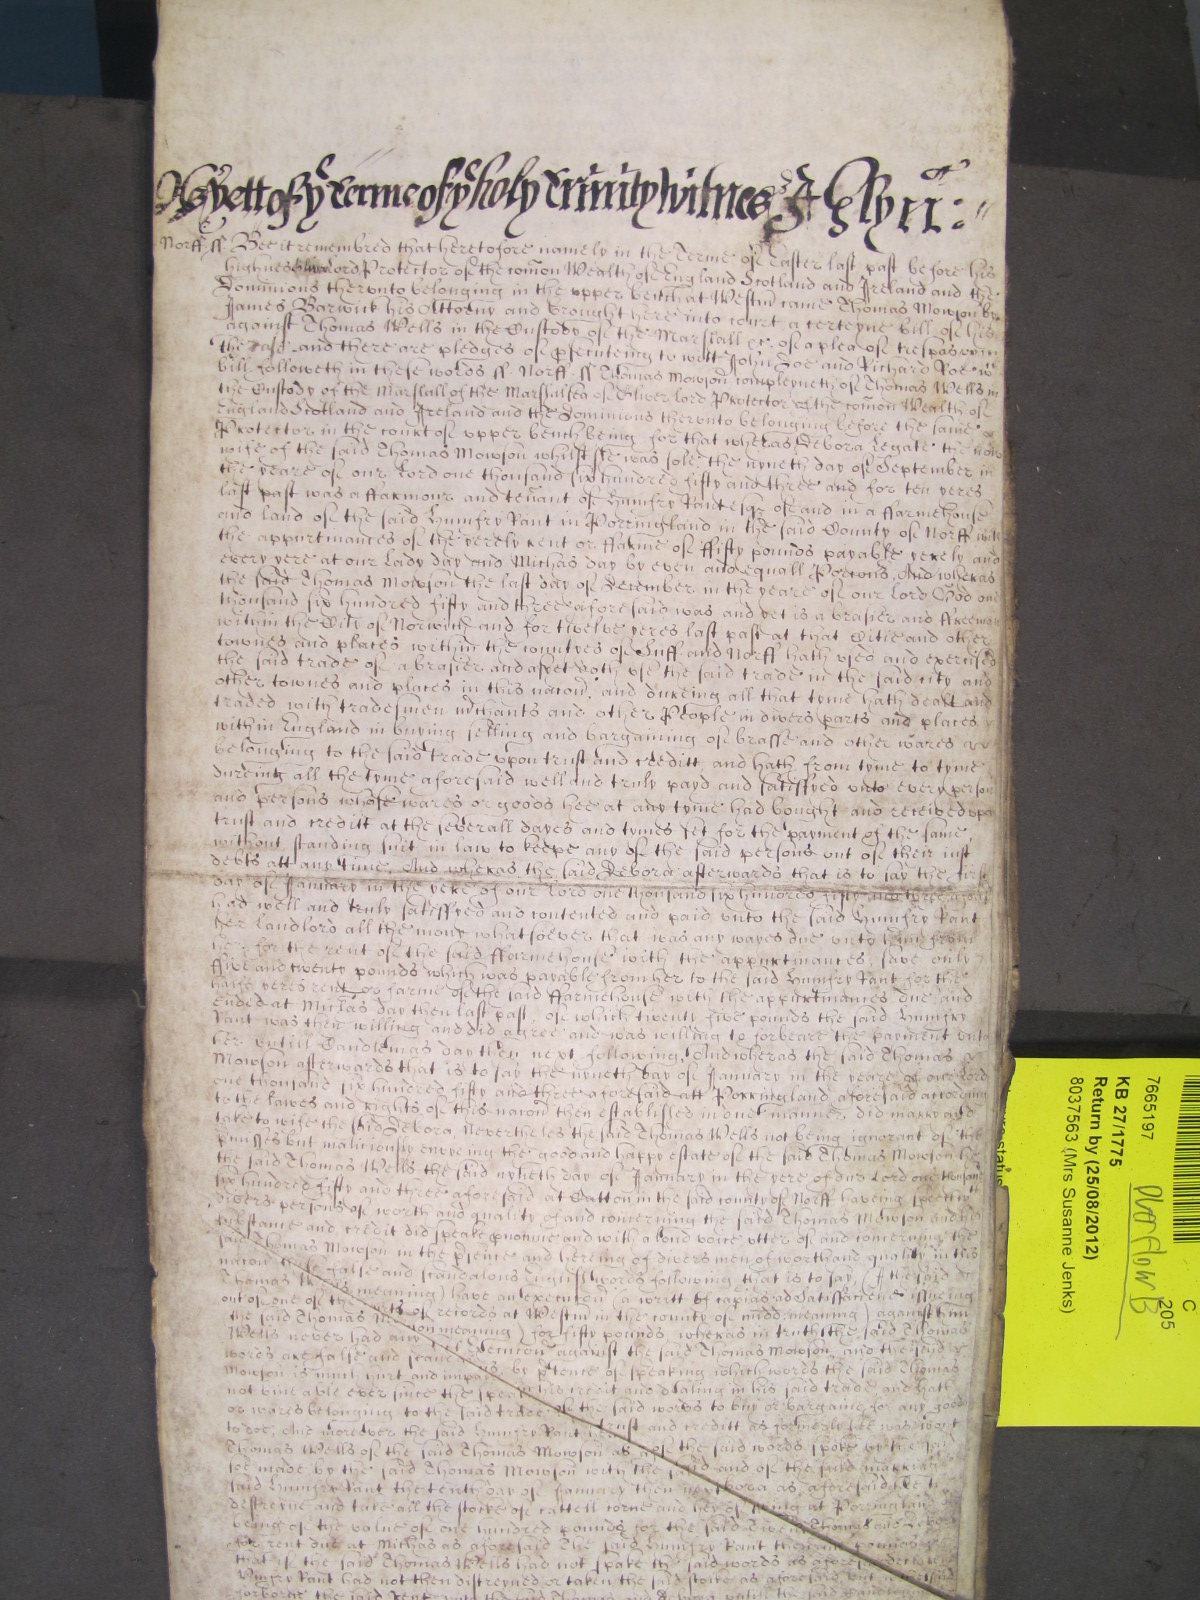 As yett of ye Terme of ye holy Trinity witnes
Norff ss Bee it remembred that heretofore namely in the Terme of Easter last past before his
highnes Oliver Lord Protector of the comon Wealth of England Scotland and Ireland and the
Dominions therunto belonging in the upper bench at Westm came Thomas Mowson by
James Barwick his Attorny and brought here into court a certeyne bill of his
against Thomas Wells in the Custody of the Marshall &c of a plea of trespas upon
the case and there are pledges of prosecuteing to witt John Doe and Richard Roe wch
bill followeth in these words ss Norff ss Thomas Mowson compleyneth of Thomas Wells in
the Custody of the Marshall of the Marshalsea of Oliver Lord Protector of the comon Wealth of
England Scotland and Ireland and the Dominions therunto belonging before the same
Protector in the court of upper bench being for that wheras Debora Legate the now
wife of the said Thomas Mowson whilst she was sole the nyneth day of September in
the yeare of our Lord one thousand six hundred fifty and three and for ten yeres
last past was a ffarmour and tenant of Humfry Rant esqr of and in a ffarmehouse
and land of the said Humfry Rant in Poringland in the said County of Norff with
the appurtnances of the yerely rent or ffarme of ffifty pounds payable yerely and
every yere at our Lady day and Michas day by even and equall Porcons And wheras
the said Thomas Mowson the last day of December in the yeare of our Lord God one
thousand six hundred fifty and three aforesaid was and yet is a brasier and ffreeman
within the City of Norwich and for twelve yeres last past at that Citie and other
townes and places within the countyes of Suff and Norff hath used and exercised
the said trade of a brasier and as yet doth use the said trade in the said city and
other townes and places in this nacon and dureing all that tyme hath dealt and
traded with tradesmen mchants and other People in divers parts and places
within England in buying selling and bargaining of brasse and other wares
belonging to the said trade upon trust and creditt and hath from tyme to tyme
dureing all the tyme aforesaid well and truly payd and satisfyed unto every person
and persons whose wares or goods hee at any tyme had bought and received upon
trust and creditt at the severall dayes and tymes set for the payment of the same
without standing suit in law to keepe any of the said persons out of their just
debts att any time And wheras the said Debora afterwards that is to say the first
day of January in the yere of our Lord one thousand six hundred fifty and three aforesaid
had well and truly satisfyed and contented and paid unto the said Humfry Rant
her landlord all the mony whatsoever that was any wayes due unto him from
her for the rent of the said ffarmehouse with the appurtnances save only
ffive and twenty pounds which was payable from her to the said Humfry Rant for the
halfe yeres rent or farme of the said ffarmehouse with the appurtnances due and
ended at Michas day then last past of which twenty five pounds the said Humfry
Rant was then willing and did agree and was willing to forbeare the payment unto
her untill Candlemas day then next following And wheras the said Thomas
Mowson afterwards that is to say the nyneth day of January in the yeare of our Lord
one thousand six hundred fifty and three aforesaid att Porringland aforesaid according
to the lawes and rights of this nacon then established in one manner did marry and
take to wife the said Debora Nevertheles the said Thomas Wells not being ignorant of the
pmisses but malitiously envying the good and happy estate of the said Thomas Mowson he
the said Thomas Wells the said nyneth day of January in the yere of our Lord one thousand
six hundred fifty and three aforesaid at Catton in the said county of Norff haveing speech wth
divers persons of worth and quality of and concerning the said Thomas Mowson and his
substance and credit did speake pnounce and with a loud voice utter of and concerning the
said Thomas Mowson in the psence and hereing of divers men of worth and quality in this
nacon these false and scandalous English words following that is to say I the said
Thomas Wells meaning) have an execution (a writt of capias ad satisfaciend issueing
out of one of the courts of records at Westm in the county of midd meaning) against him
the said Thomas Mowson meaning) for fifty pounds wheras in truth the said Thomas
Wells never had any execution against the said Thomas Mowson and the said
words are false and scand by ptence of speaking which words the said Thomas
Mowson is much hurt and impaired his credit and dealing in his said trade and hath
not bine able ever since the speaking the said words to buy or bargaine for any goods
or wares belonging to the said trade trust and creditt as formerly hee was wont
to doe And moreover the said Humfry Rant the said words spoke by the said
Thomas Wells of the said Thomas Mowson as and of the said marriage
soe made by the said Thomas Mowson with the said Debora as aforesaid
said Humfry Rant the tenth day of January then next at Porringland
destreyne and take all the stocke of cattell corne and hey
being of the value of one hundred pounds for the said Thomas and Debora
for rent due at Michas as aforesaid the said Humfry Rant
that if the said Thomas Wells had not spake the said words as aforesaid
Humfry Rant had not then distreyned or taken the said stocke as aforesaid
7665197
KB 27/1775
Return by (25/08/2012)
8037563 (Mrs Susanne Jenks)
Overflow B
C
205